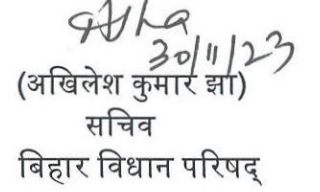 30/11/23
(अखिलेश कुमार झा)
सचिव
बिहार विधान परिषद्